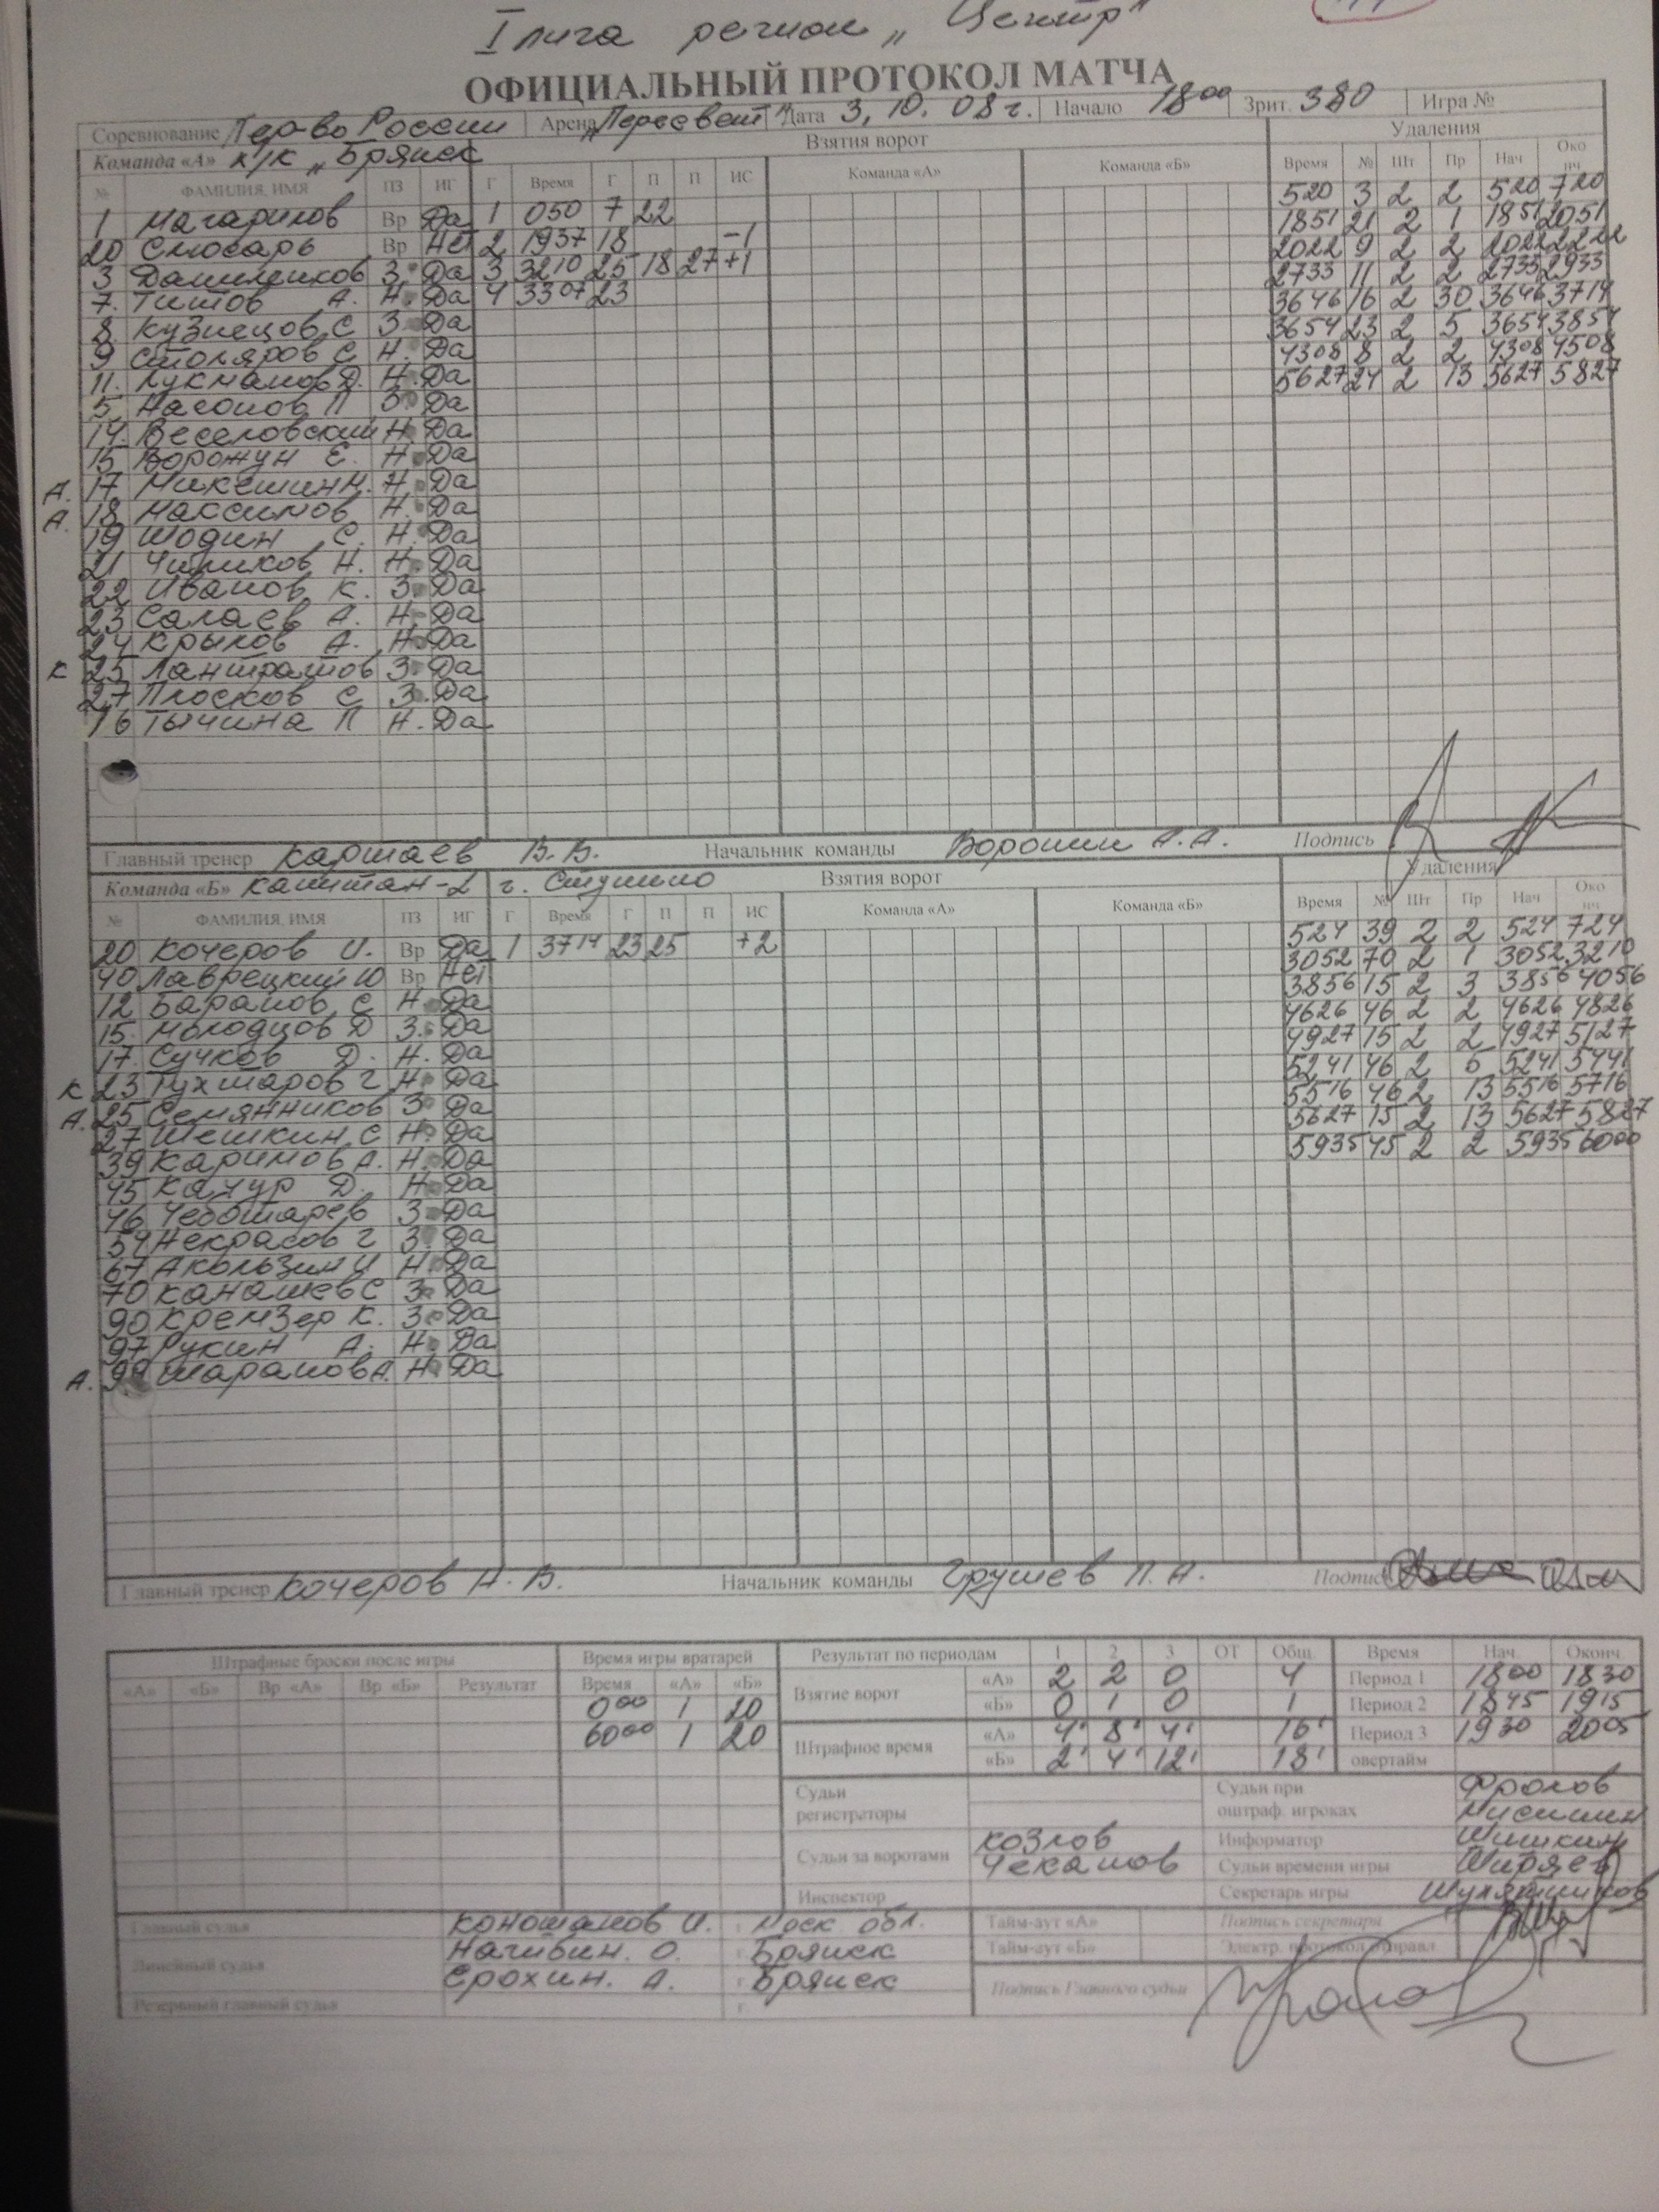 I лига регион „Центр"
ОФИЦИАЛЬНЫЙ ПРОТОКОЛ МАТЧА
Соревнование Пер-во России Арена „Пересвет" Дата 3.10.08 г. Начало 18 00 Зрит. 380 Игра №
Команда «А» х/к „Брянск Взятия ворот Удаления
№ ФАМИЛИЯ, ИМЯ ПЗ ИГ Г Время Г П П ИС Команда «А» Команда «Б» Время № Шт Пр Нач Око нч
1 Магарилов Вр Да 1 050 7 22 520 3 2 2 520 720
20 Слюсарь Вр Нет 2 1937 18 -1 1851 21 2 1 1851 2051
3 Даниленков З. Да 3 3210 25 18 27 +1 2022 9 2 2 2022 2222
7. Титов А. Н. Да 4 3307 23 2733 11 2 2 2733 2933
8 Кузнецов С З. Да 3646 16 2 30 3646 3714
9 Столяров С Н. Да 3654 23 2 5 3654 3854
11. Лукманов Д. Н. Да 4308 8 2 2 4308 4508
5 Насонов П З. Да 5627 24 2 13 5627 5827
14. Веселовский Н Да
15 Ворожун Е. Н. Да
А. 17 Микешин Н. Н. Да
А. 18 Максимов Н. Да
19 Шодин С. Н. Да
21 Чиликов Н. Н. Да
22 Иванов К. З. Да
23 Салаев А. Н. Да
24 Крылов А. Н. Да
К 25 Лантратов З. Да
27 Плосков С З. Да
16 Тычина П Н. Да
Главный тренер Картаев В.В. Начальник команды Воронин А.А. Подпись
Команда «Б» Капитан-2 г. Ступино Взятия ворот Удаления
№ ФАМИЛИЯ, ИМЯ ПЗ ИГ Г Время Г П П ИС Команда «А» Команда «Б» Время № Шт Пр Нач Око нч
20 Кочеров И. Вр Да 1 3714 23 25 +2 524 39 2 2 524 724
40 Лаврецкий Ю Вр Нет 3052 70 2 1 3052 3210
12 Баранов С Н. Да 3856 15 2 3 3856 4056
15. Молодцов Д З. Да 4626 46 2 2 4626 4826
17. Сучков Д. Н. Да 4927 15 2 2 4927 5127
К 23 Тухтаров Г Н. Да 5241 46 2 5 5241 5441
А. 25 Семянников З Да 5516 46 2 13 5516 5716
27 Шешкин С Н. Да 5627 15 2 13 5627 5827
39 Каримов А. Н. Да 5935 45 2 2 5935 6000
45 Качур Д. Н. Да
46 Чеботарев З. Да
54 Некрасов Г З. Да
67 Акользин И Н. Да
70 Канашев С З. Да
90 Кремзер К. З. Да
97 Рукин А. Н. Да
А. 99 Шарапов А. Н. Да
Главный тренер Кочеров Н.В. Начальник команды Грушев П.А. Подпись
Штрафные броски после игры Время игры вратарей Результат по периодам 1 2 3 ОТ Общ. Время Нач. Оконч.
«А» «Б» Вр «А» Вр «Б» Результат Время «А» «Б» Взятие ворот «А» 2 2 0 4 Период 1 18 00 18 30
0 00 1 20 «Б» 0 1 0 1 Период 2 18 45 19 15
60 00 1 20 Штрафное время «А» 4' 8' 4' 16' Период 3 19 30 20 05
«Б» 2' 4' 12' 18' овертайм
Судьи регистраторы Судьи при оштраф. игроках Фролов
Судьи за воротами Козлов Информатор Шишкин
Чеканов Судьи времени игры Ширяев
Инспектор Секретарь игры
Главный судья Коношанов И. г. Моск. обл. Тайм-аут «А» Подпись секретаря
Линейный судья Нагибин. О. Брянск Тайм-аут «Б» Электр. протокол отправл.
Ерохин. А. г. Брянск Подпись Главного судьи
Резервный главный судья г.